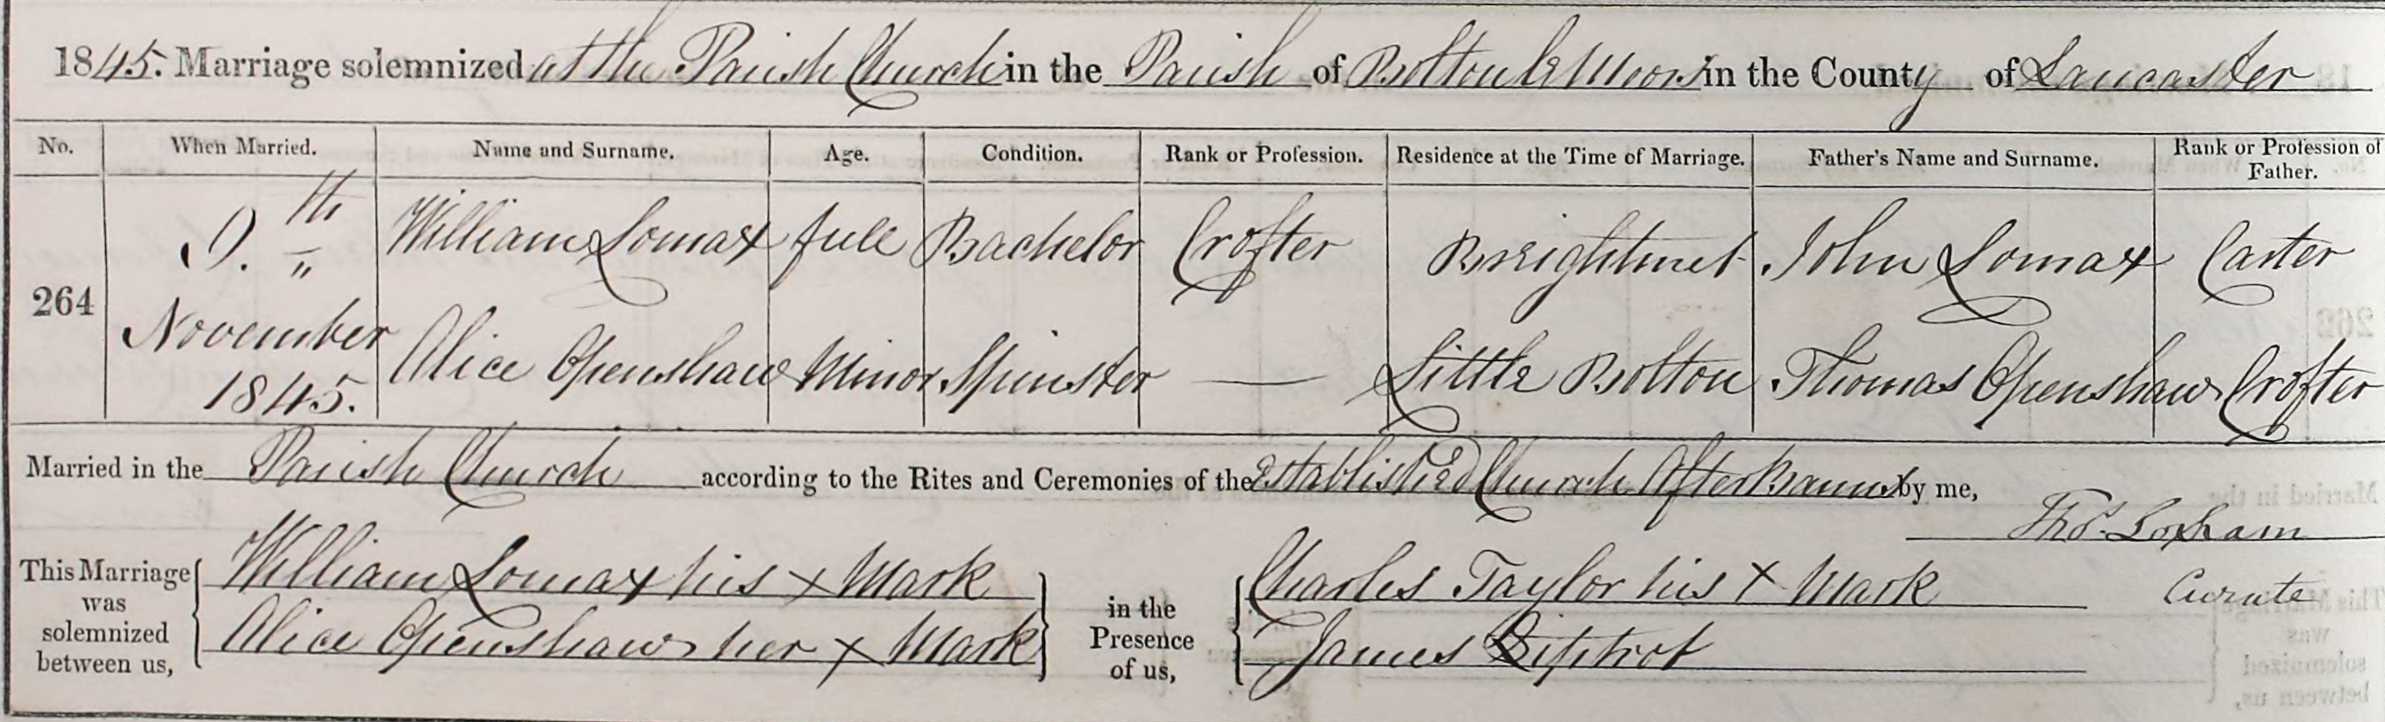 1845. Marriage solemnized at the Parish Church in the Parish of Bolton le Moors in the County of Lancaster
No. When Married. Name and Surname. Age. Condition. Rank or Profession. Residence at the Time of Marriage. Father's Name and Surname. Rank or Profession of Father.
264 9.th November 1845.
William Lomax full Bachelor Crofter Breightmet John Lomax Carter
Alice Openshaw Minor Spinster — Little Bolton Thomas Openshaw Crofter
Married in the Parish Church according to the Rites and Ceremonies of the Established Church After Banns by me,
Thos. Loxham
Curate
This Marriage was solemnized between us,
William Lomax his x Mark
Alice Openshaw her x Mark
in the Presence of us,
Charles Taylor his x Mark
James Liptrot